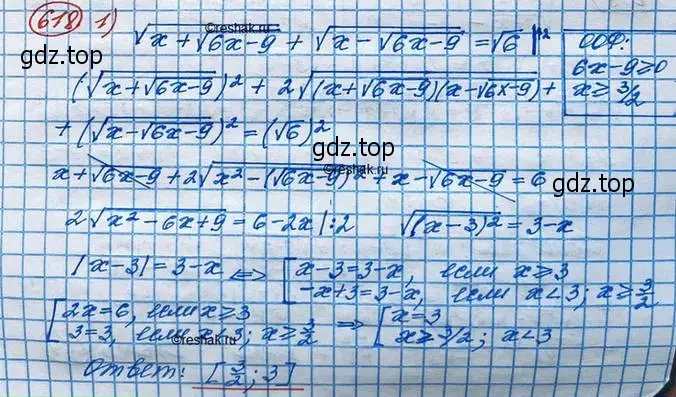 618 1) √(x+√(6x-9)) + √(x-√(6x-9)) = √6 |↑²
©reshak.ru
ООФ:
6x-9≥0
x≥3/2
gdz.top
gdz.top
(√(x+√(6x-9)))² + 2√((x+√(6x-9))(x-√(6x-9))) +
+ (√(x-√(6x-9)))² = (√6)²
gdz.top
©reshak.ru
x+√(6x-9)+2√(x²-(√(6x-9))²)+x-√(6x-9) = 6
gdz.top
2√(x²-6x+9) = 6-2x |:2 √((x-3)²) = 3-x
|x-3| = 3-x ⟺ [x-3=3-x, если x≥3
-x+3=3-x, если x<3; x≥3/2
[2x=6, если x≥3
3=3, если x<3; x≥3/2 ⇒ [x=3
x≥3/2; x<3
©reshak.ru
Ответ: [3/2; 3]
gdz.top
gdz.top